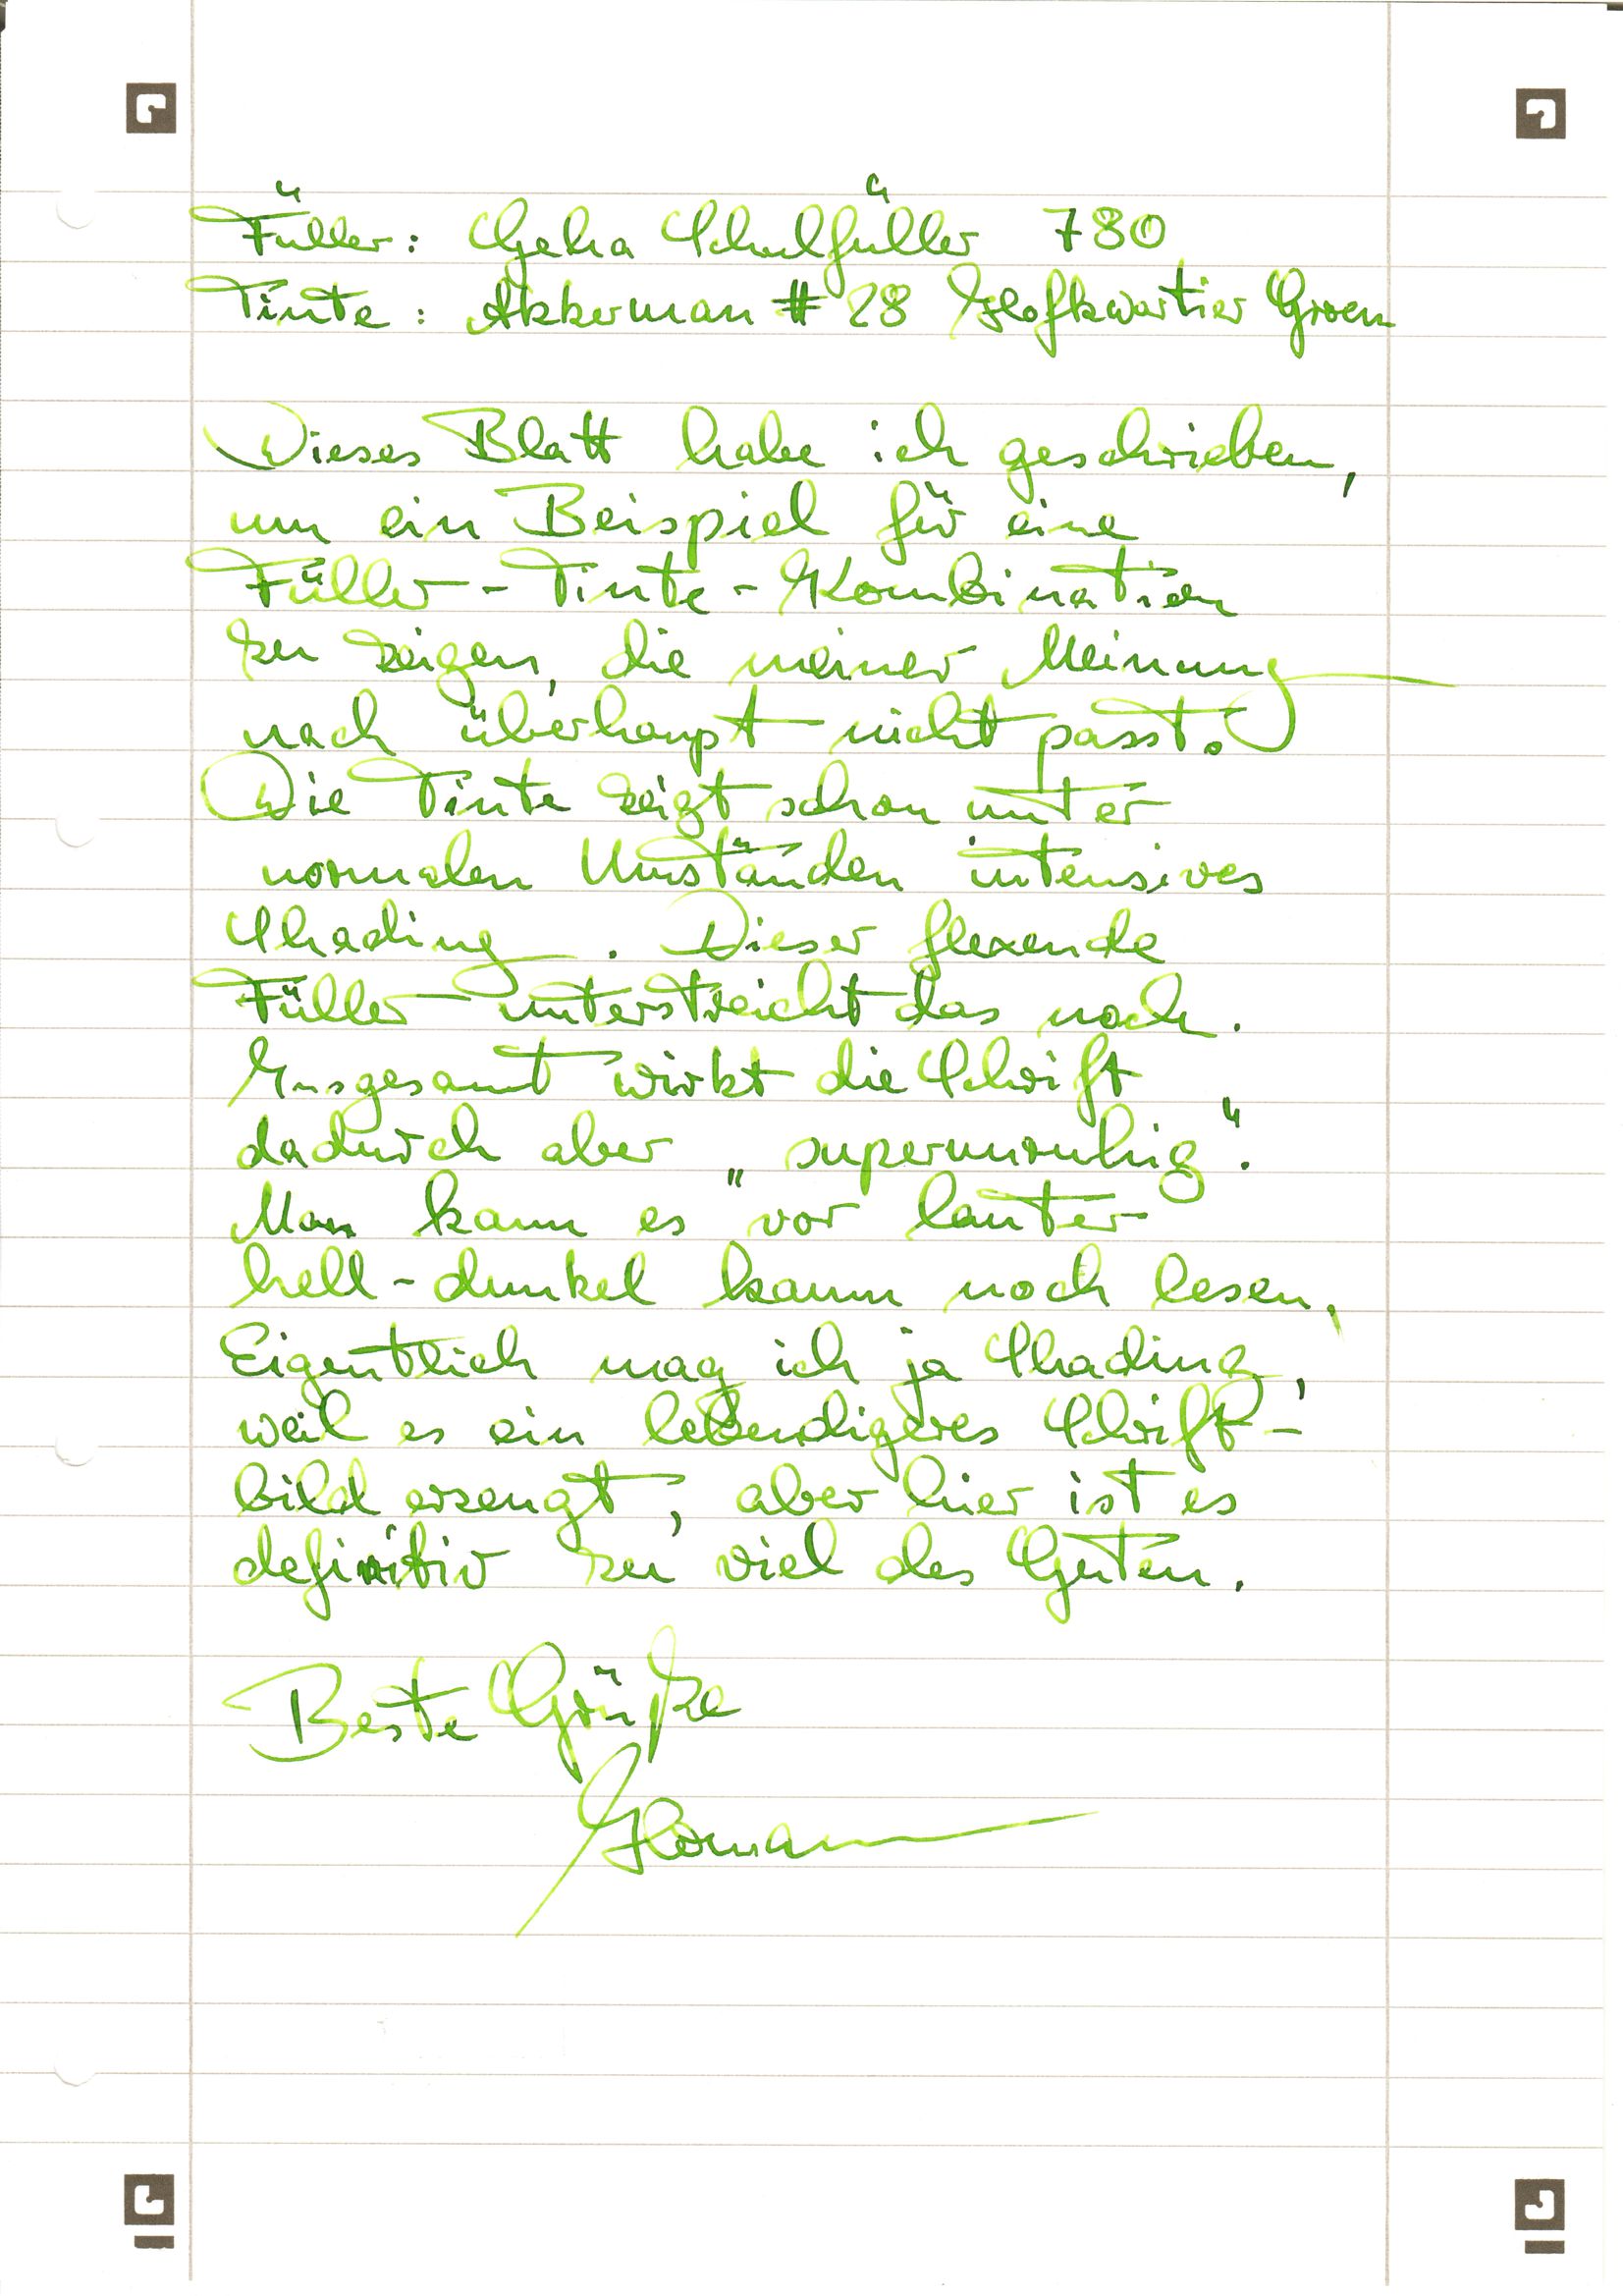 Füller: Geha Schulfüller 780
Tinte: Akkerman #28 Hofkwartier Groen
Dieses Blatt habe ich geschrieben,
um ein Beispiel für eine
Füller-Tinte-Kombination
zu zeigen, die meiner Meinung
nach überhaupt nicht passt.
Die Tinte zeigt schon unter
normalen Umständen intensives
Shading. Dieser flexende
Füller unterstreicht das noch.
Insgesamt wirkt die Schrift
dadurch aber „superunruhig“.
Man kann es vor lauter
hell-dunkel kaum noch lesen.
Eigentlich mag ich ja Shading,
weil es ein lebendigeres Schrift-
bild erzeugt, aber hier ist es
definitiv zu viel des Guten.
Beste Grüße